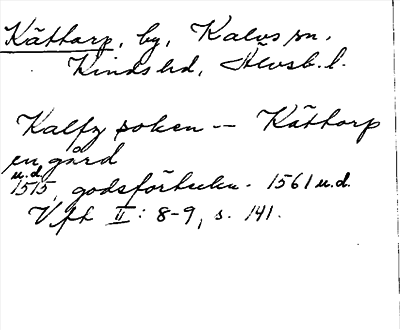 Kättorp, by, Kalvs sn,
Kinds hd, Älvsb. l.
Kalfz soken -- Kättorp
en gård
u.d.
1515, godsförteckn. 1561 u.d.
Vfh II: 8-9, s. 141.